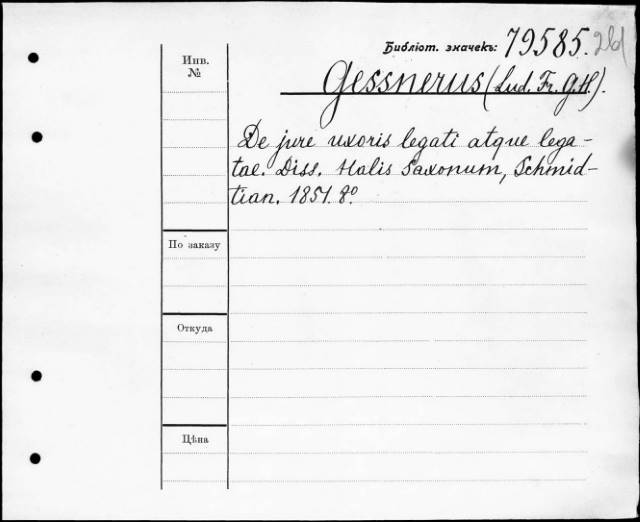 Библіот. значекъ: 79585. 2ld
Инв.
№
Gessnerus (Lud. Fr. G. H.).
De jure uxoris legati atque lega-
tae. Diss. Halis Saxonum, Schmid-
tian. 1851. 8º.
По заказу
Откуда
Цѣна